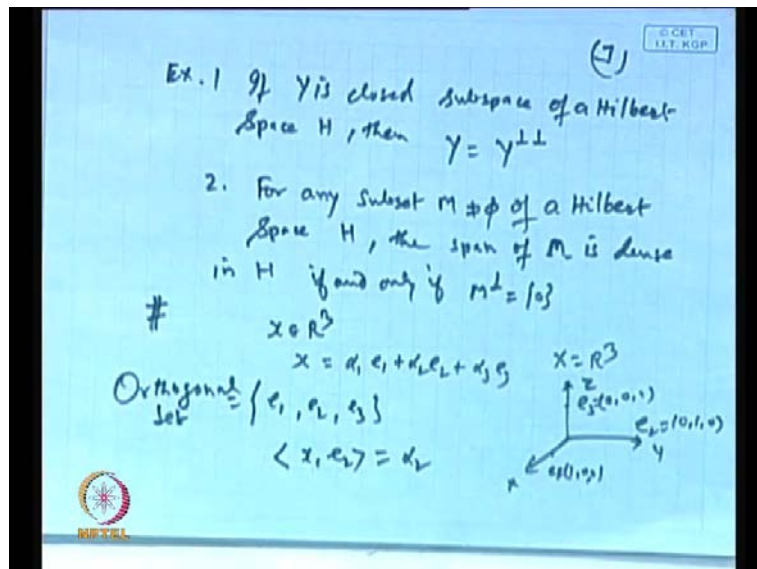 (7)
© CET
I.I.T. KGP
Ex. 1 If Y is closed subspace of a Hilbert
Space H, then Y = Y⊥⊥
2. For any subset M ≠ φ of a Hilbert
Space H, the span of M is dense
in H if and only if M⊥ = {0}
#
x ∈ R³
x = α₁ e₁ + α₂ e₂ + α₃ e₃
X = R³
Orthogonal set = {e₁, e₂, e₃}
Z
e₃ = (0,0,1)
e₂ = (0,1,0)
Y
<x, e₂> = α₂
X
e₁(1,0,0)
NPTEL